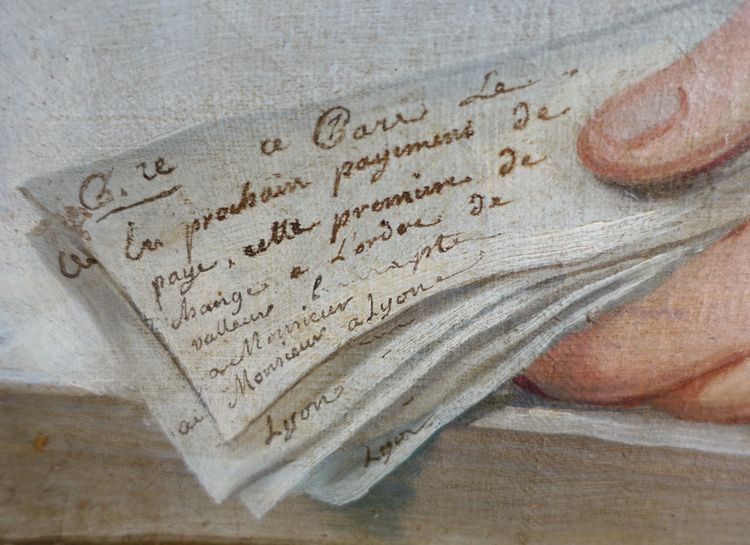 B. re ce Pare Le
Au prochain payement de
paye, cette premiere de
change, a L'ordre de
valleur compte
a Monsieur
au Monsieur a Lyon
Lyon
Lyon